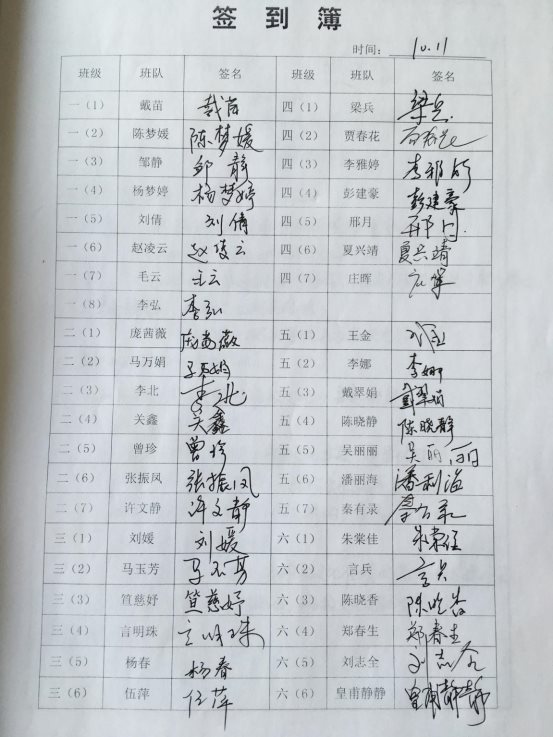 签到簿
时间: 10.11
班级 班队 签名 班级 班队 签名
一（1） 戴苗 戴苗 四（1） 梁兵 梁兵
一（2） 陈梦媛 陈梦媛 四（2） 贾春花
一（3） 邹静 邹静 四（3） 李雅婷 李雅婷
一（4） 杨梦婷 杨梦婷 四（4） 彭建豪 彭建豪
一（5） 刘倩 刘倩 四（5） 邢月 邢月
一（6） 赵凌云 赵凌云 四（6） 夏兴靖 夏兴靖
一（7） 毛云 毛云 四（7） 庄晖
一（8） 李弘 李弘
二（1） 庞茜薇 庞茜薇 五（1） 王金
二（2） 马万娟 马万娟 五（2） 李娜 李娜
二（3） 李北 李北 五（3） 戴翠娟 戴翠娟
二（4） 关鑫 关鑫 五（4） 陈晓静 陈晓静
二（5） 曾珍 曾珍 五（5） 吴丽丽 吴丽丽
二（6） 张振凤 张振凤 五（6） 潘丽海 潘利海
二（7） 许文静 许文静 五（7） 秦有录
三（1） 刘媛 刘媛 六（1） 朱棠佳 朱棠佳
三（2） 马玉芳 马玉芳 六（2） 言兵 言兵
三（3） 笪慈妤 笪慈妤 六（3） 陈晓香 陈晓香
三（4） 言明珠 言明珠 六（4） 郑春生 郑春生
三（5） 杨春 杨春 六（5） 刘志全 刘志全
三（6） 伍萍 伍萍 六（6） 皇甫静静 皇甫静静